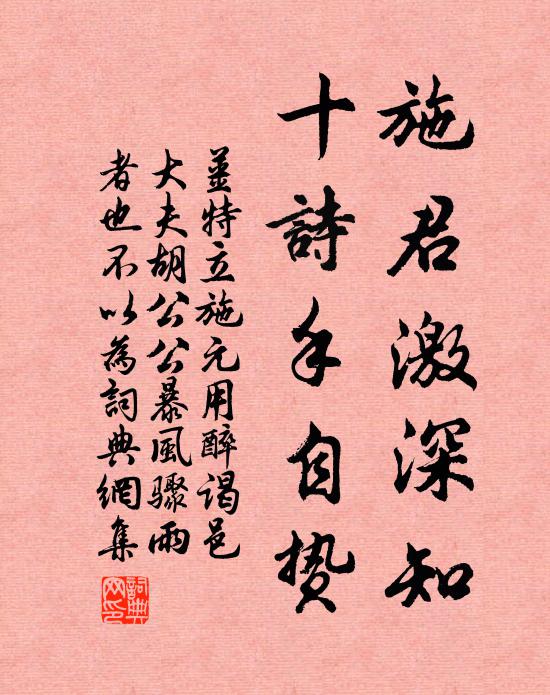 施君激深知
十詩手自贽
姜特立施元用醉谒邑
大夫胡公公暴風骤雨
者也不以為詞典網集
詞典